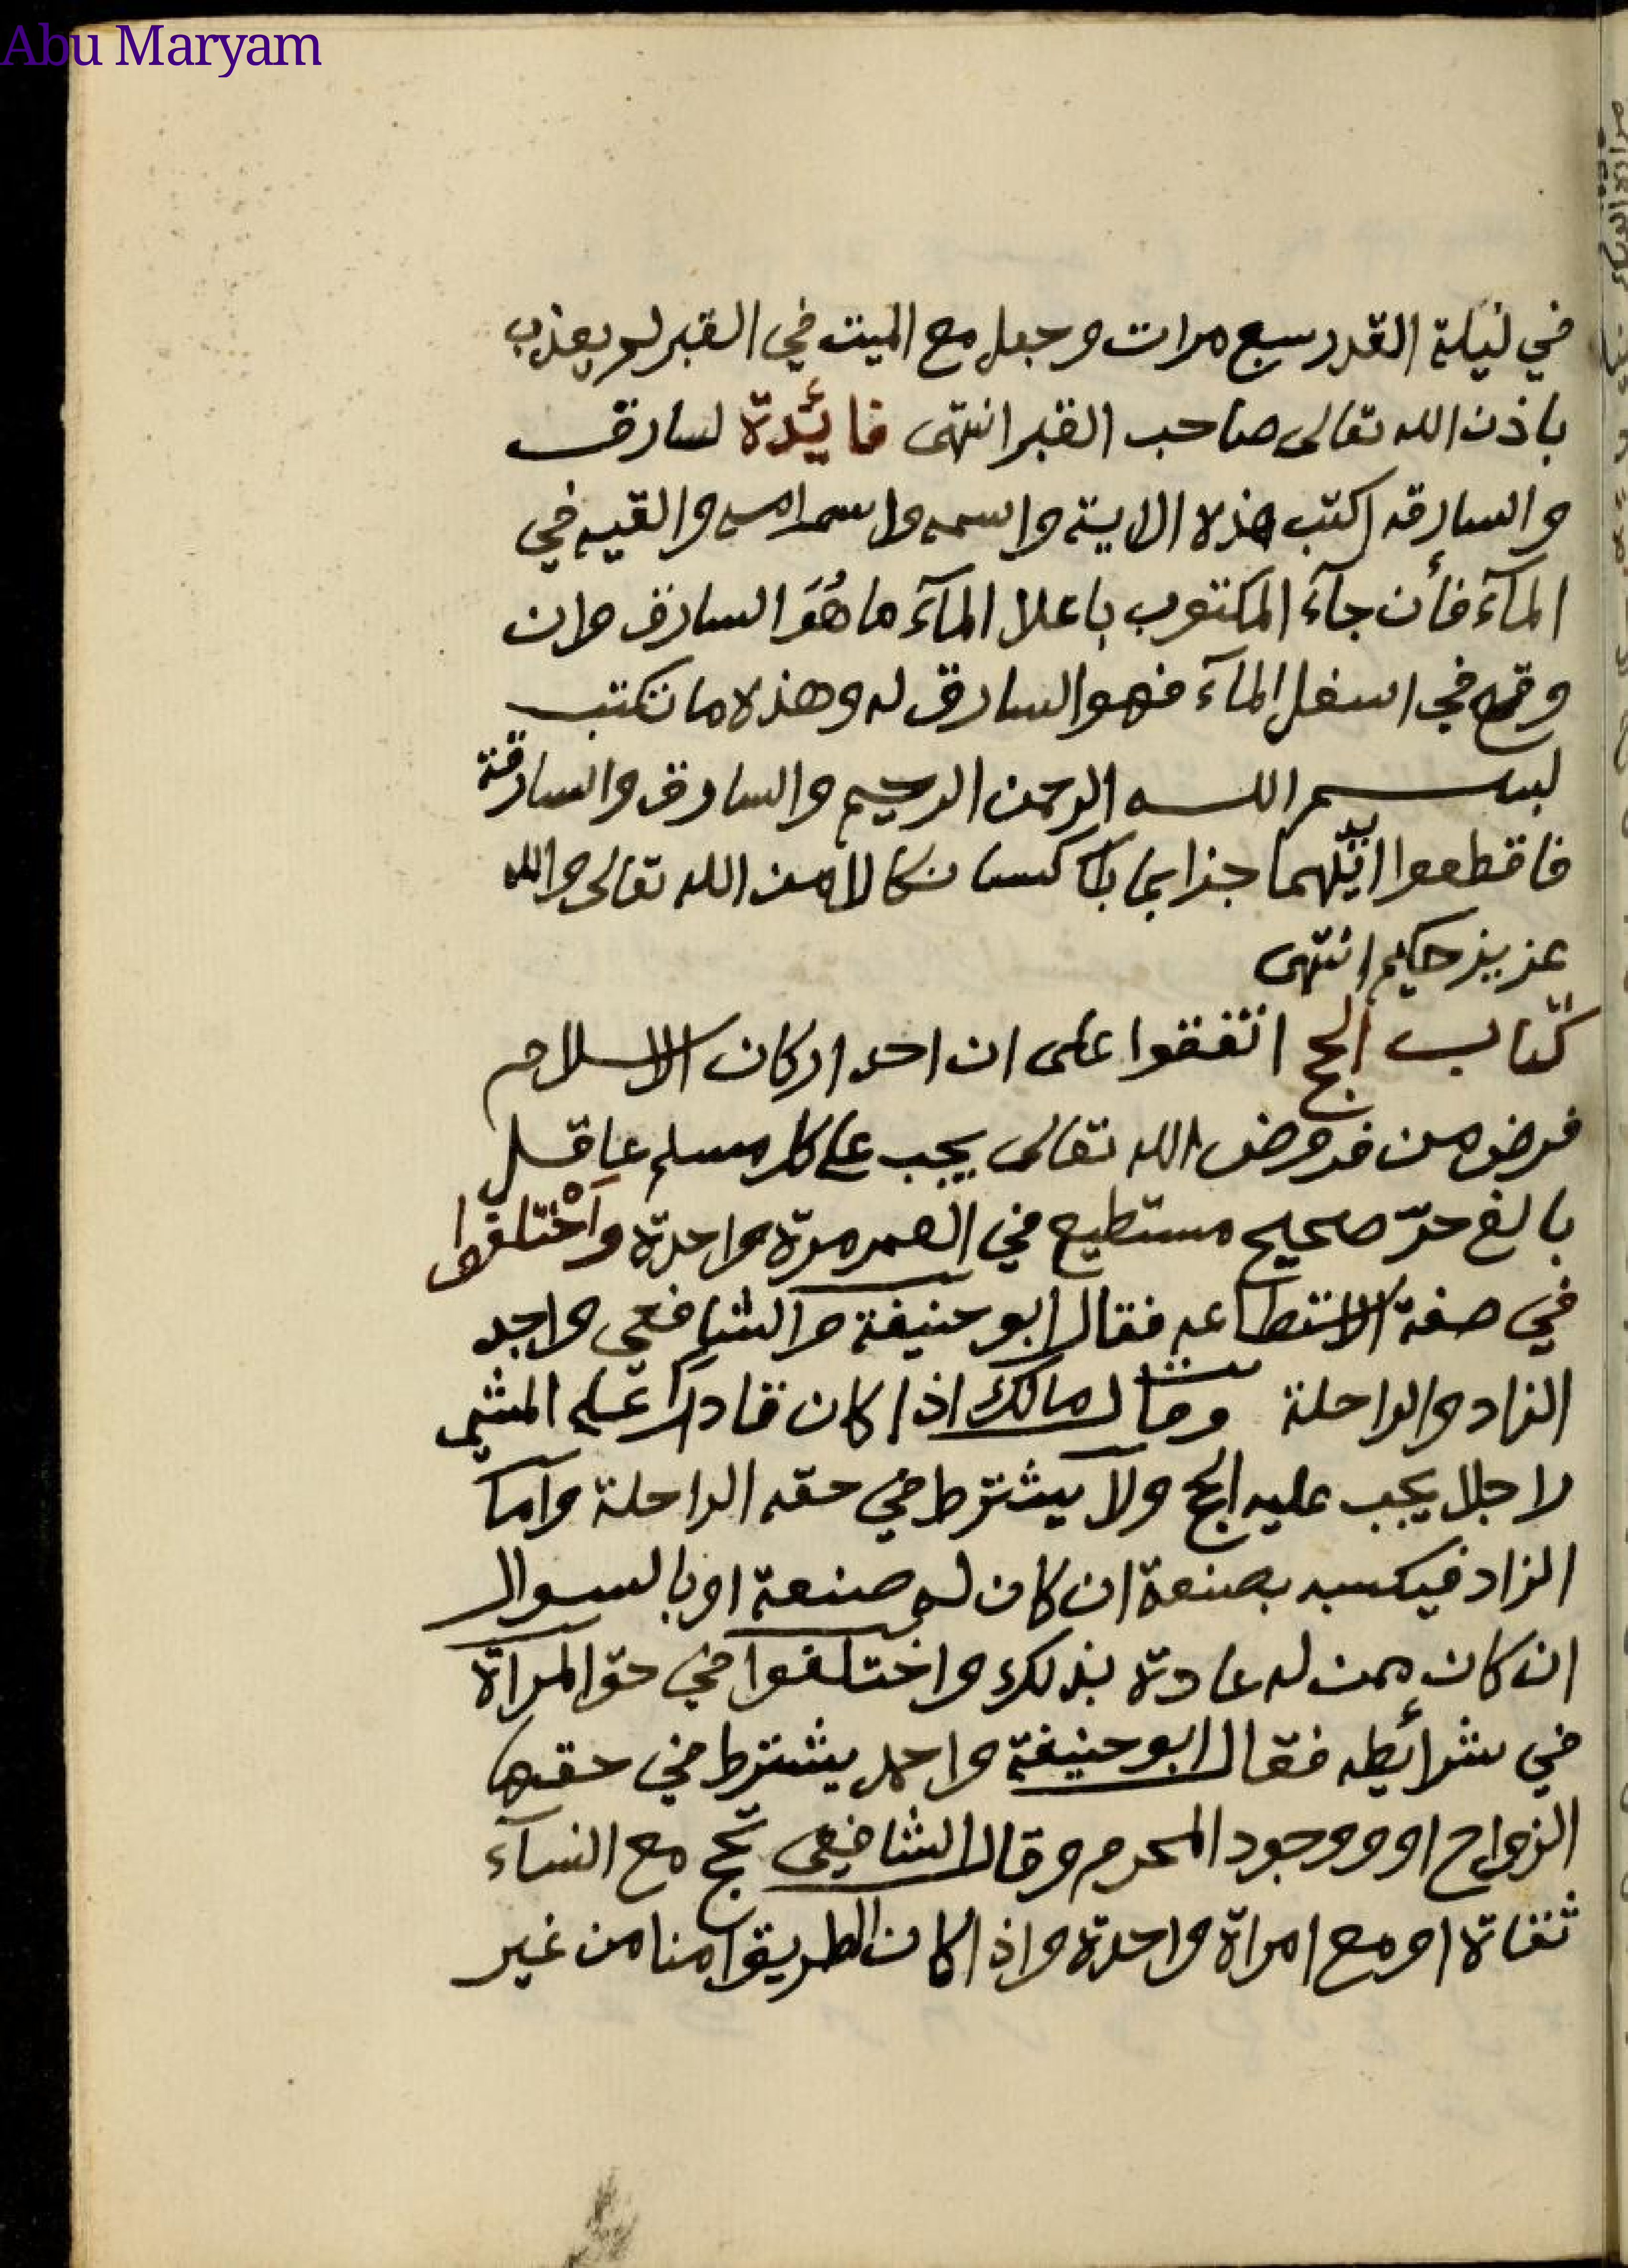 Abu Maryam
في ليلة القدر سبع مرات وجعل مع الميت في القبر لم يعذب
باذن الله تعالى صاحب القبر انتهى فائدة لسارق
والسارقه اكتب هذه الاية واسمه واسم امه والقيه في
المآء فأن جآء المكتوب باعلا المآء ما هُوَ السارق وان
وقع في اسفل المآء فهو السارق له وهذه ما تكتب
بسم الله الرحمن الرحيم والسارق والسارقة
فاقطعوا ايديهما جزا بما كسبا نكالا من الله تعالى والله
عزيز حكيم انتهى
كتاب الحج اتفقوا على ان احد اركان الاسلام
فرض من فروض الله تعالى يجب على كل مسلم عاقل
بالغ حرّ صحيح مستطيع في العمر مرّة واحدة واختلفوا
في صفة الاستطاعه فقال ابو حنيفة والشافعي واجد
الزاد والراحلة وقال مالك اذا كان قادرا على المشي
راجلا يجب عليه الحج ولا يشترط في حقه الراحلة واما
الزاد فيكسبه بصنعة ان كان له صنعة او بالسوال
ان كان ممن له عادة بذلك واختلفوا في حق المرآة
في شرائطه فقال ابو حنيفة واحمد يشترط في حقها
الزواج او ووجود المحرم وقال الشافعى تحج مع النسآء
ثقاة او مع امراة واحدة واذا كان الطريق امنا من غير